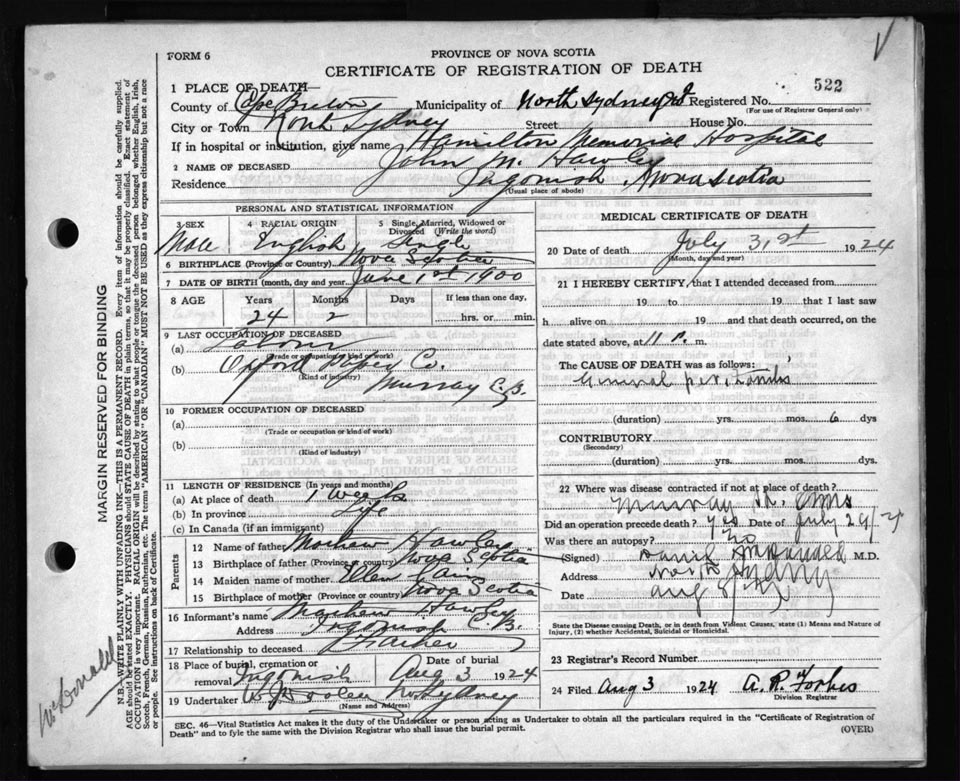 FORM 6
PROVINCE OF NOVA SCOTIA
CERTIFICATE OF REGISTRATION OF DEATH
522
1 PLACE OF DEATH—
County of Cape Breton Municipality of North Sydney Registered No.
(For use of Registrar General only)
City or Town North Sydney Street House No.
If in hospital or institution, give name Hamilton Memorial Hospital
2 NAME OF DECEASED John M. Hawley
Residence Ingonish Nova Scotia
(Usual place of abode)
PERSONAL AND STATISTICAL INFORMATION
3 SEX 4 RACIAL ORIGIN 5 Single, Married, Widowed or Divorced (Write the word)
Male English Single
6 BIRTHPLACE (Province or Country) Nova Scotia
7 DATE OF BIRTH (month, day and year) June 1st 1900
8 AGE Years Months Days If less than one day,
24 2 hrs. or min.
9 LAST OCCUPATION OF DECEASED
(a)
(Trade or occupation or kind of work)
(b) Oxford Co.
(Kind of industry)
Murray C.B.
10 FORMER OCCUPATION OF DECEASED
(a)
(Trade or occupation or kind of work)
(b)
(Kind of industry)
11 LENGTH OF RESIDENCE (In years and months)
(a) At place of death 1 Week
(b) In province Life
(c) In Canada (if an immigrant)
Parents
12 Name of father Hawley
13 Birthplace of father (Province or country) Nova Scotia
14 Maiden name of mother Ellen
15 Birthplace of mother (Province or country) Nova Scotia
16 Informant's name Hawley
Address Ingonish C.B.
17 Relationship to deceased
18 Place of burial, cremation or removal Ingonish Date of burial Aug 3 1924
19 Undertaker No. Sydney
(Name and Address)
MEDICAL CERTIFICATE OF DEATH
20 Date of death July 31st 1924
(Month, day and year)
21 I HEREBY CERTIFY, that I attended deceased from
19 to 19 that I last saw
h alive on 19 and that death occurred, on
date stated above, at 11 P. m.
The CAUSE OF DEATH was as follows:
General
(duration) yrs. mos. 6 dys
CONTRIBUTORY
(Secondary)
(duration) yrs. mos. dys.
22 Where was disease contracted if not at place of death?
Murray St. Anns
Did an operation precede death? Yes Date of July 29/24
Was there an autopsy? No
(Signed) M.D.
Address North Sydney
Date Aug
State the Disease causing Death, or in death from Violent Causes, state (1) Means and Nature of
Injury, (2) whether Accidental, Suicidal or Homicidal.
23 Registrar's Record Number
24 Filed Aug 3 1924 A. R. Forbes
Division Registrar
SEC. 46—Vital Statistics Act makes it the duty of the Undertaker or person acting as Undertaker to obtain all the particulars required in the "Certificate of Registration of
Death" and to fyle the same with the Division Registrar who shall issue the burial permit.
(OVER)
MARGIN RESERVED FOR BINDING
N.B.—WRITE PLAINLY WITH UNFADING INK—THIS IS A PERMANENT RECORD. Every item of information should be carefully supplied.
AGE should be stated EXACTLY. PHYSICIANS should STATE CAUSE OF DEATH in plain terms, so that it may be properly classified. Exact statement of
OCCUPATION is very important. RACIAL ORIGIN will be described by stating to what people or tongue the deceased person belonged whether English, Irish,
Scotch, French, German, Russian, Ruthenian, etc. The terms "AMERICAN" OR "CANADIAN" MUST NOT BE USED as they express citizenship but not a race
or people. See instructions on back of Certificate.
McDonald